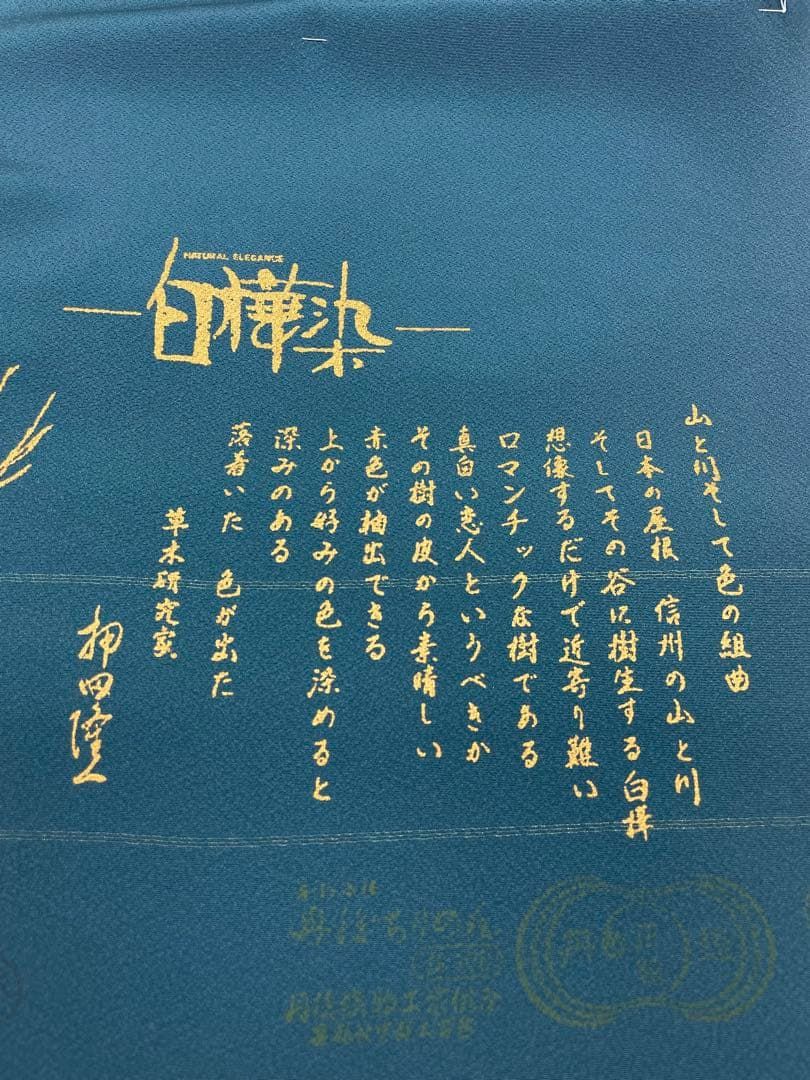 NATURAL ELEGANCE
白樺染
山と川そして色の組曲
日本の屋根 信州の山と川
そしてその谷に樹生する白樺
想像するだけで近寄り難い
ロマンチックな樹である
真白い恋人というべきか
その樹の皮から素晴しい
赤色が抽出できる
上から好みの色を染めると
深みのある
落着いた 色が出た
草木研究家
押田隆一
丹後ちりめん
丹後織物工業組合